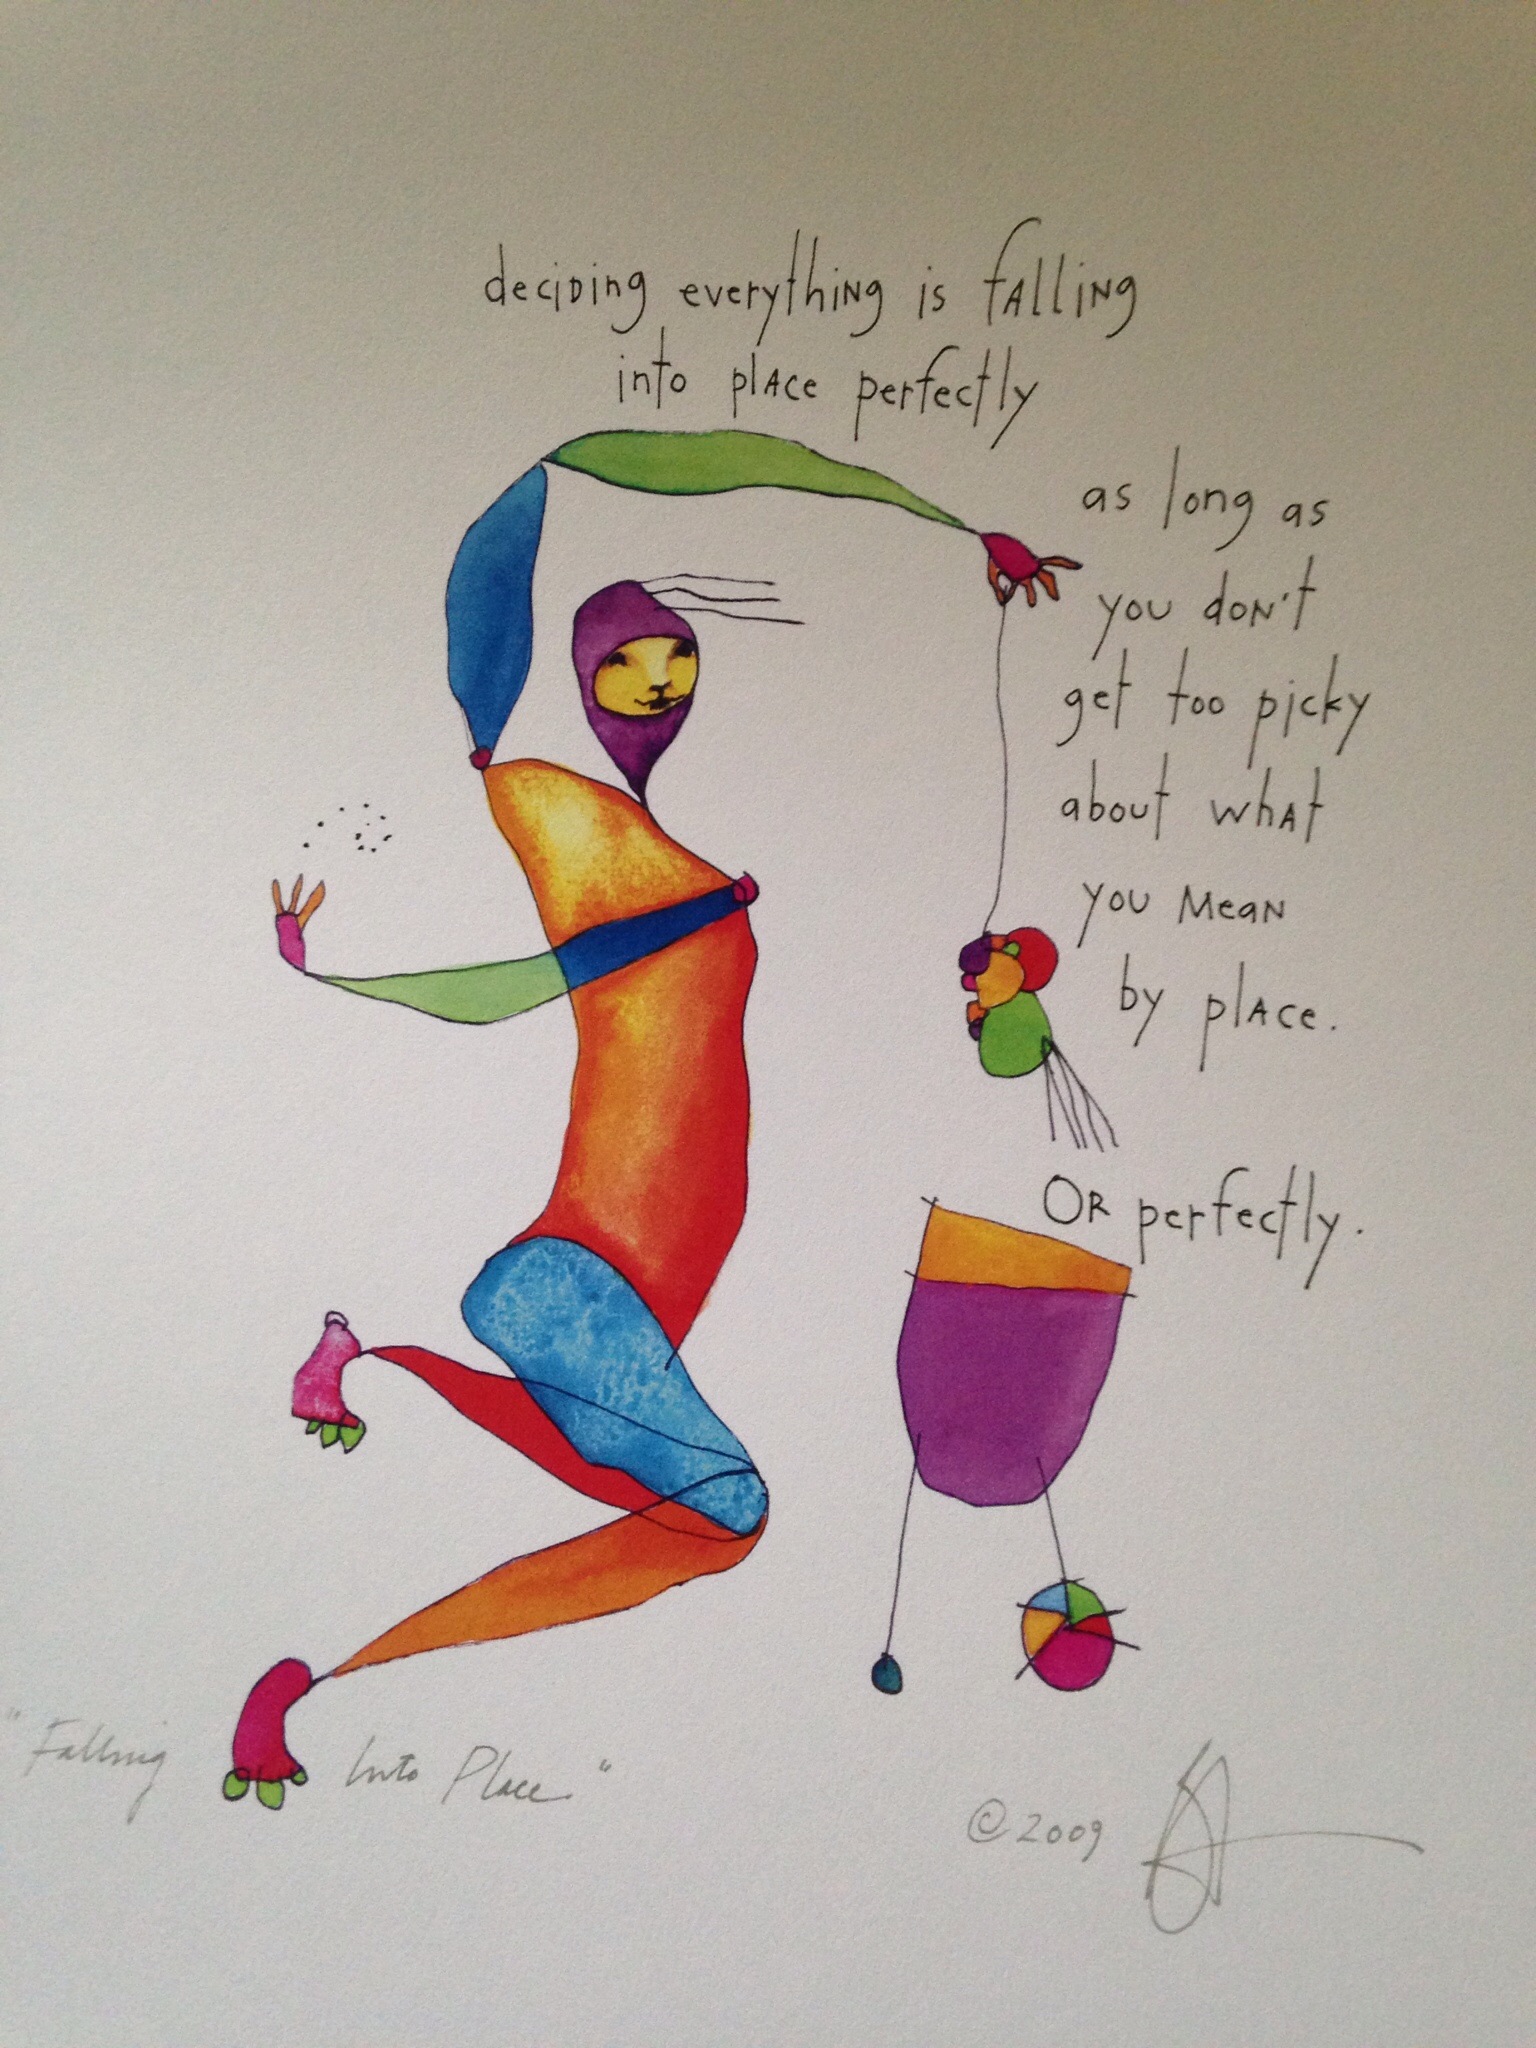 deciding everything is falling
into place perfectly
as long as
you don't
get too picky
about what
you mean
by place.
OR perfectly.
"Falling Into Place"
©2009